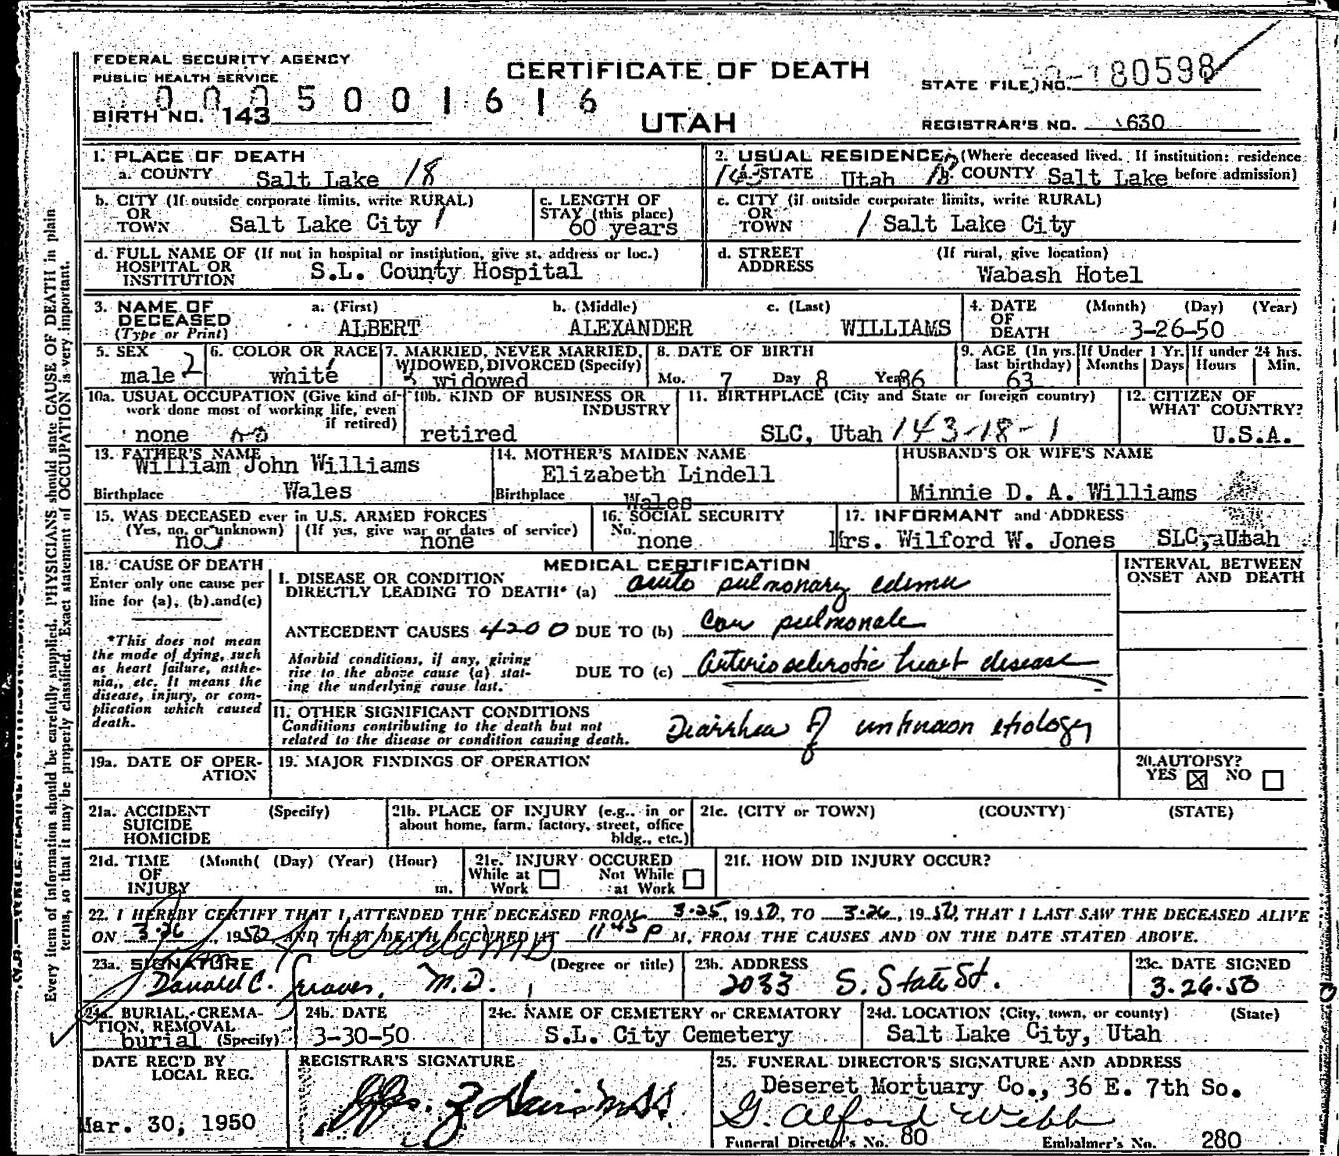 FEDERAL SECURITY AGENCY
PUBLIC HEALTH SERVICE
CERTIFICATE OF DEATH
STATE FILE NO. 180598
0005001616
BIRTH NO. 143
UTAH
REGISTRAR'S NO. 630
1. PLACE OF DEATH
a. COUNTY Salt Lake 18
2. USUAL RESIDENCE (Where deceased lived. If institution: residence before admission)
143 a. STATE Utah 18 b. COUNTY Salt Lake
b. CITY (If outside corporate limits, write RURAL) OR TOWN Salt Lake City 1
c. LENGTH OF STAY (this place) 60 years
c. CITY (if outside corporate limits, write RURAL) OR TOWN / Salt Lake City
d. FULL NAME OF (If not in hospital or institution, give st. address or loc.) HOSPITAL OR INSTITUTION S.L. County Hospital
d. STREET ADDRESS (If rural, give location) Wabash Hotel
3. NAME OF DECEASED (Type or Print)
a. (First) ALBERT
b. (Middle) ALEXANDER
c. (Last) WILLIAMS
4. DATE OF DEATH (Month) (Day) (Year) 3-26-50
5. SEX male 2
6. COLOR OR RACE white
7. MARRIED, NEVER MARRIED, WIDOWED, DIVORCED (Specify) widowed
8. DATE OF BIRTH Mo. 7 Day 8 Year 86
9. AGE (In yrs. last birthday) 63
If Under 1 Yr. Months Days
If under 24 hrs. Hours Min.
10a. USUAL OCCUPATION (Give kind of work done most of working life, even if retired) none
10b. KIND OF BUSINESS OR INDUSTRY retired
11. BIRTHPLACE (City and State or foreign country) SLC, Utah 143-18-1
12. CITIZEN OF WHAT COUNTRY? U.S.A.
13. FATHER'S NAME William John Williams
Birthplace Wales
14. MOTHER'S MAIDEN NAME Elizabeth Lindell
Birthplace Wales
HUSBAND'S OR WIFE'S NAME
Minnie D. A. Williams
15. WAS DECEASED ever in U.S. ARMED FORCES
(Yes, no, or unknown) no
(If yes, give war or dates of service) none
16. SOCIAL SECURITY No. none
17. INFORMANT and ADDRESS
Mrs. Wilford W. Jones SLC, Utah
18. CAUSE OF DEATH
Enter only one cause per line for (a), (b) and (c)
*This does not mean the mode of dying, such as heart failure, asthenia, etc. It means the disease, injury, or complication which caused death.
MEDICAL CERTIFICATION
INTERVAL BETWEEN ONSET AND DEATH
I. DISEASE OR CONDITION DIRECTLY LEADING TO DEATH* (a) acute pulmonary edema
ANTECEDENT CAUSES 4200 DUE TO (b) Cor pulmonale
Morbid conditions, if any, giving rise to the above cause (a) stating the underlying cause last.
DUE TO (c) Arteriosclerotic heart disease
II. OTHER SIGNIFICANT CONDITIONS
Conditions contributing to the death but not related to the disease or condition causing death.
Diarrhea of unknown etiology
19a. DATE OF OPERATION
19. MAJOR FINDINGS OF OPERATION
20. AUTOPSY? YES ☒ NO ☐
21a. ACCIDENT SUICIDE HOMICIDE (Specify)
21b. PLACE OF INJURY (e.g., in or about home, farm, factory, street, office bldg., etc.)
21c. (CITY or TOWN) (COUNTY) (STATE)
21d. TIME OF INJURY (Month( (Day) (Year) (Hour) m.
21e. INJURY OCCURED While at Work ☐ Not While at Work ☐
21f. HOW DID INJURY OCCUR?
22. I HEREBY CERTIFY THAT I ATTENDED THE DECEASED FROM 3-25, 1950, TO 3-26, 1950, THAT I LAST SAW THE DECEASED ALIVE
ON 3-26, 1950 AND THAT DEATH OCCURED AT 11 45 P M, FROM THE CAUSES AND ON THE DATE STATED ABOVE.
23a. SIGNATURE (Degree or title) M.D.
23b. ADDRESS 2033 S. State St.
23c. DATE SIGNED 3.26.50
24a. BURIAL, CREMATION, REMOVAL (Specify) burial
24b. DATE 3-30-50
24c. NAME OF CEMETERY or CREMATORY S.L. City Cemetery
24d. LOCATION (City, town, or county) (State) Salt Lake City, Utah
DATE REC'D BY LOCAL REG. Mar. 30, 1950
REGISTRAR'S SIGNATURE
25. FUNERAL DIRECTOR'S SIGNATURE AND ADDRESS
Deseret Mortuary Co., 36 E. 7th So.
G. Alford Webb
Funeral Director's No. 80 Embalmer's No. 280
Every item of information should be carefully supplied. PHYSICIANS should state CAUSE OF DEATH in plain
terms, so that it may be properly classified. Exact statement of OCCUPATION is very important.